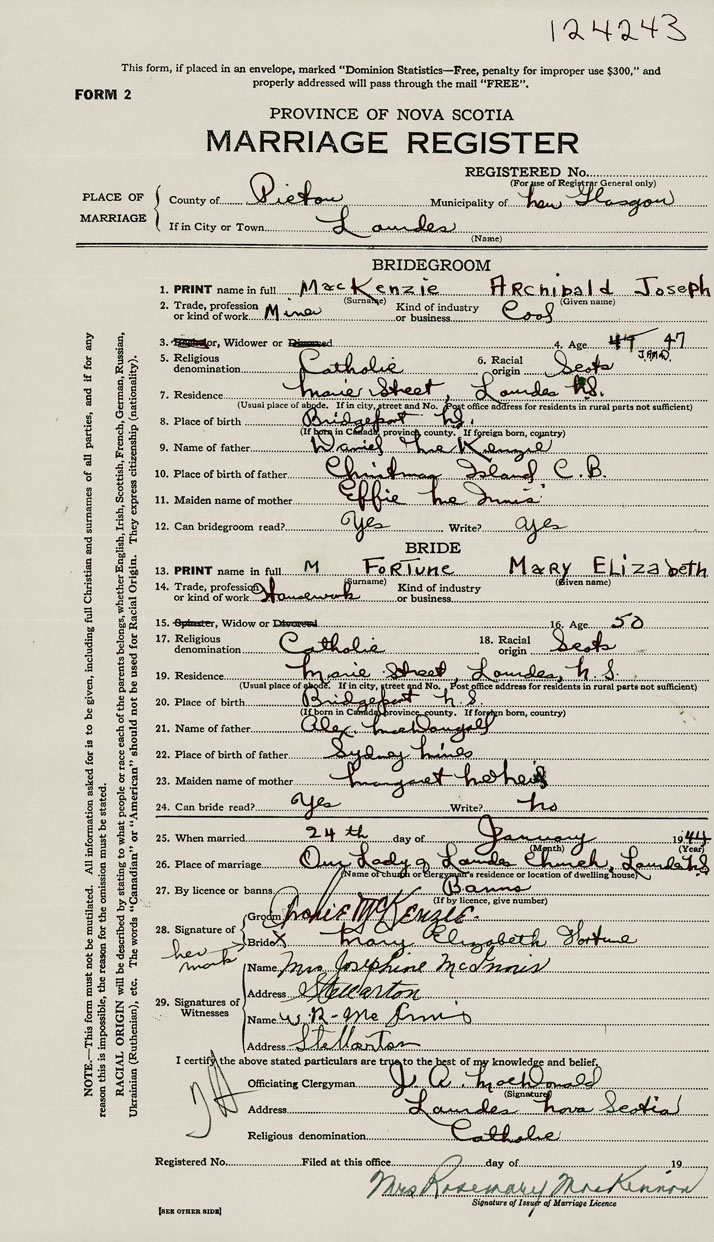 124243
This form, if placed in an envelope, marked "Dominion Statistics—Free, penalty for improper use $300," and
properly addressed will pass through the mail "FREE".
FORM 2
PROVINCE OF NOVA SCOTIA
MARRIAGE REGISTER
REGISTERED No.
(For use of Registrar General only)
PLACE OF MARRIAGE
County of Pictou Municipality of New Glasgow
If in City or Town Lourdes
(Name)
BRIDEGROOM
1. PRINT name in full MacKenzie Archibald Joseph
(Surname) (Given name)
2. Trade, profession or kind of work Miner Kind of industry or business Coal
3. Bachelor, Widower or Divorced 4. Age 47
5. Religious denomination Catholic 6. Racial origin Scots
7. Residence Marie Street, Lourdes N.S.
(Usual place of abode. If in city, street and No. Post office address for residents in rural parts not sufficient)
8. Place of birth Bridgeport N.S.
(If born in Canada, province, county. If foreign born, country)
9. Name of father Daniel McKenzie
10. Place of birth of father Christmas Island C.B.
11. Maiden name of mother Effie McInnis
12. Can bridegroom read? Yes Write? Yes
BRIDE
13. PRINT name in full M Fortune Mary Elizabeth
(Surname) (Given name)
14. Trade, profession or kind of work Housework Kind of industry or business
15. Spinster, Widow or Divorced 16. Age 50
17. Religious denomination Catholic 18. Racial origin Scots
19. Residence Marie Street, Lourdes, N.S.
(Usual place of abode. If in city, street and No. Post office address for residents in rural parts not sufficient)
20. Place of birth Bridgeport N.S.
(If born in Canada, province, county. If foreign born, country)
21. Name of father Alex. MacDougall
22. Place of birth of father Sydney Mines
23. Maiden name of mother Margaret
24. Can bride read? Yes Write? No
25. When married 24th day of January 1944
(Month) (Year)
26. Place of marriage Our Lady of Lourdes Church, Lourdes N.S.
(Name of church or clergyman's residence or location of dwelling house)
27. By licence or banns Banns
(If by licence, give number)
28. Signature of
Groom Archie McKenzie
Bride X Mary Elizabeth Fortune
her mark
29. Signatures of Witnesses
Name Mrs Josephine McInnis
Address Stellarton
Name W. R. McInnis
Address Stellarton
I certify the above stated particulars are true to the best of my knowledge and belief.
Officiating Clergyman J. A. MacDonald
(Signature)
Address Lourdes Nova Scotia
Religious denomination Catholic
Registered No. Filed at this office day of 19
Mrs Rosemary MacKinnon
Signature of Issuer of Marriage Licence
[SEE OTHER SIDE]
NOTE.—This form must not be mutilated. All information asked for is to be given, including full Christian and surnames of all parties, and if for any
reason this is impossible, the reason for the omission must be stated.
RACIAL ORIGIN will be described by stating to what people or race each of the parents belongs, whether English, Irish, Scottish, French, German, Russian,
Ukrainian (Ruthenian), etc. The words "Canadian" or "American" should not be used for Racial Origin. They express citizenship (nationality).